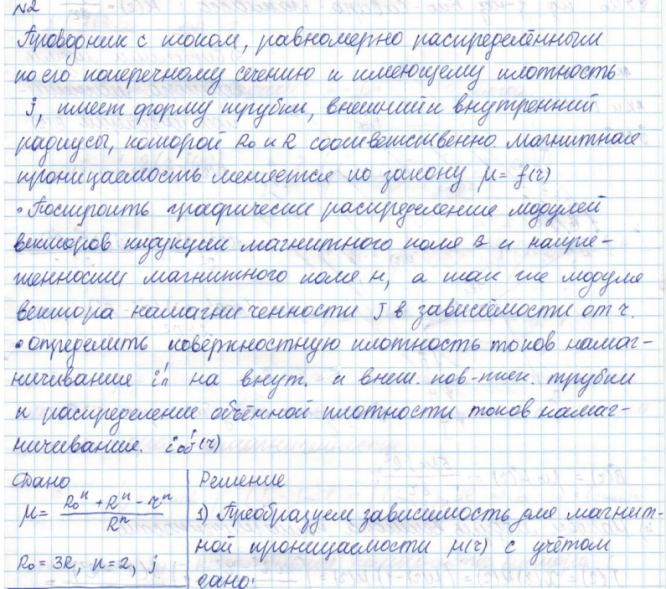 №2
Проводник с током, равномерно распределённым
по его поперечному сечению и имеющему плотность
j, имеет форму трубки, внешний и внутренний
радиусы, которой R₀ и R соответственно. Магнитная
проницаемость меняется по закону μ = f(r)
• Построить графически распределение модулей
векторов индукции магнитного поля B и напря-
женности магнитного поля H, а так же модуля
вектора намагниченности J в зависимости от r.
• Определить поверхностную плотность токов намаг-
ничивания i'ₙ на внут. и внеш. пов-тях. трубки
и распределение объёмной плотности токов намаг-
ничивания. i'об(r)
Дано
μ = (R₀ⁿ + Rⁿ - rⁿ) / Rⁿ
R₀ = 3R, n = 2, j
Решение
1) Преобразуем зависимость для магнит-
ной проницаемости μ(r) с учётом
дано: